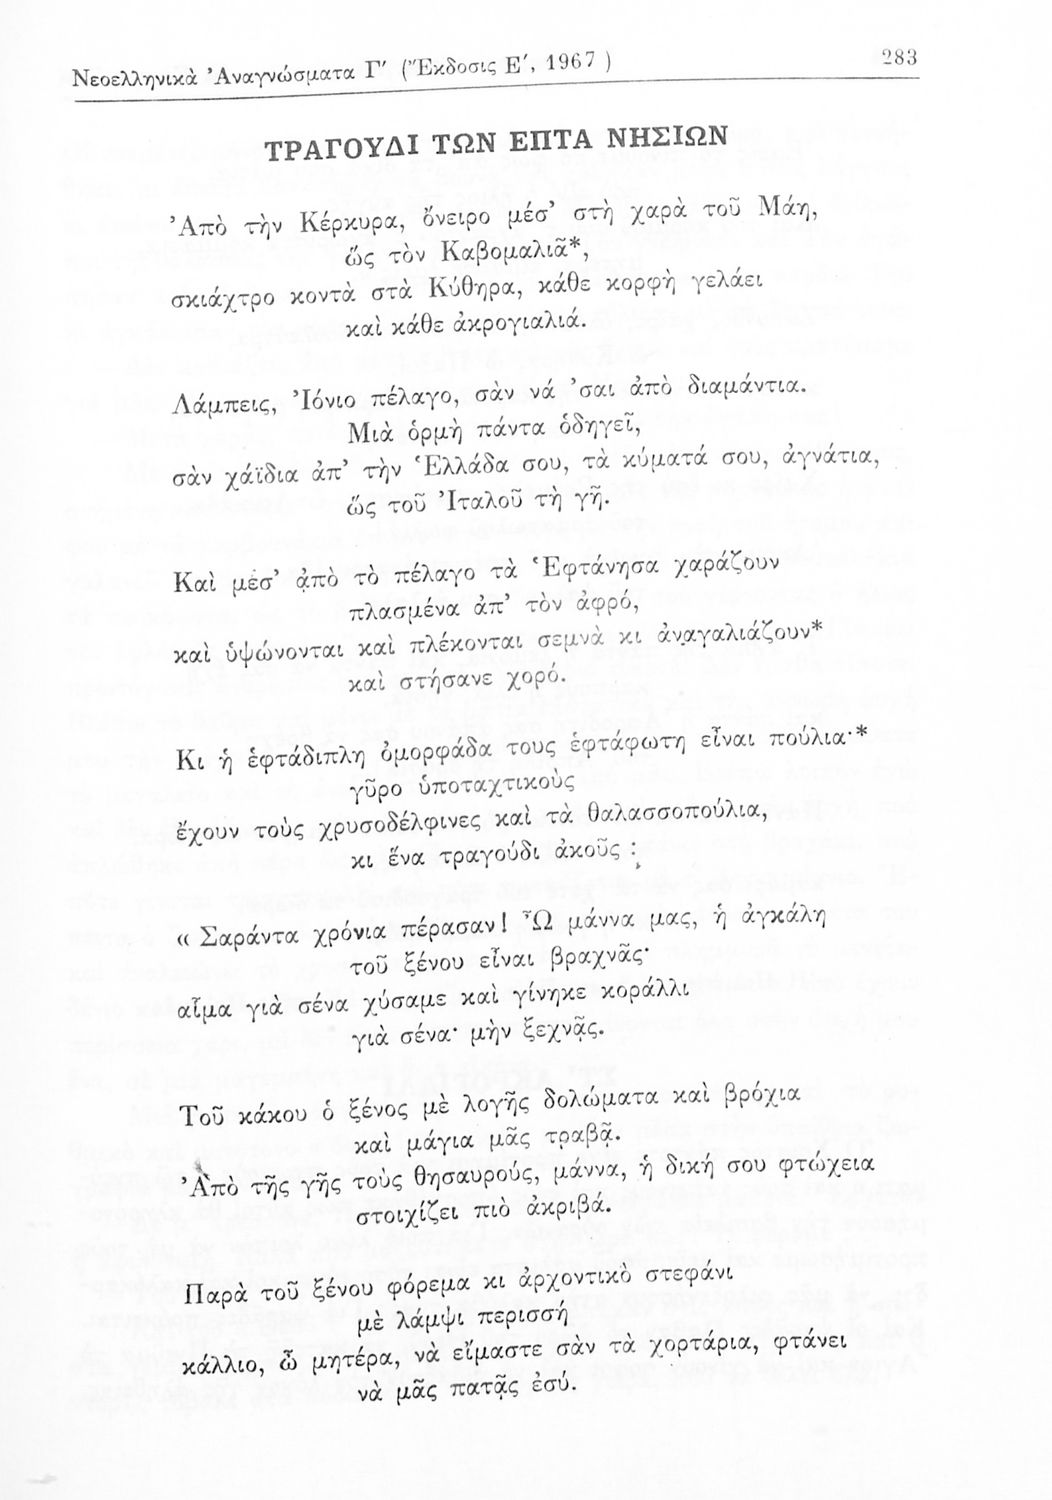 Νεοελληνικὰ Ἀναγνώσματα Γ′ (Ἔκδοσις Ε′, 1967 )
283
ΤΡΑΓΟΥΔΙ ΤΩΝ ΕΠΤΑ ΝΗΣΙΩΝ
Ἀπὸ τὴν Κέρκυρα, ὄνειρο μέσ’ στὴ χαρὰ τοῦ Μάη,
ὥς τὸν Καβομαλιᾶ*,
σκιάχτρο κοντὰ στὰ Κύθηρα, κάθε κορφὴ γελάει
καὶ κάθε ἀκρογιαλιά.
Λάμπεις, Ἰόνιο πέλαγο, σὰν νά ’σαι ἀπὸ διαμάντια.
Μιὰ ὁρμὴ πάντα ὁδηγεῖ,
σὰν χάϊδια ἀπ’ τὴν Ἑλλάδα σου, τὰ κύματά σου, ἀγνάτια,
ὥς τοῦ Ἰταλοῦ τὴ γῆ.
Καὶ μέσ’ ἀπὸ τὸ πέλαγο τὰ Ἑφτάνησα χαράζουν
πλασμένα ἀπ’ τὸν ἀφρό,
καὶ ὑψώνονται καὶ πλέκονται σεμνὰ κι ἀναγαλιάζουν*
καὶ στήσανε χορό.
Κι ἡ ἑφτάδιπλη ὀμορφάδα τους ἑφτάφωτη εἶναι πούλια·*
γῦρο ὑποταχτικοὺς
ἔχουν τοὺς χρυσοδέλφινες καὶ τὰ θαλασσοπούλια,
κι ἕνα τραγούδι ἀκοῦς :
« Σαράντα χρόνια πέρασαν! Ὦ μάννα μας, ἡ ἀγκάλη
τοῦ ξένου εἶναι βραχνᾶς·
αἷμα γιὰ σένα χύσαμε καὶ γίνηκε κοράλλι
γιὰ σένα· μὴν ξεχνᾷς.
Τοῦ κάκου ὁ ξένος μὲ λογῆς δολώματα καὶ βρόχια
καὶ μάγια μᾶς τραβᾷ.
Ἀπὸ τῆς γῆς τοὺς θησαυρούς, μάννα, ἡ δική σου φτώχεια
στοιχίζει πιὸ ἀκριβά.
Παρὰ τοῦ ξένου φόρεμα κι ἀρχοντικὸ στεφάνι
μὲ λάμψι περισσή
κάλλιο, ὦ μητέρα, νὰ εἴμαστε σὰν τὰ χορτάρια, φτάνει
νὰ μᾶς πατᾷς ἐσύ.